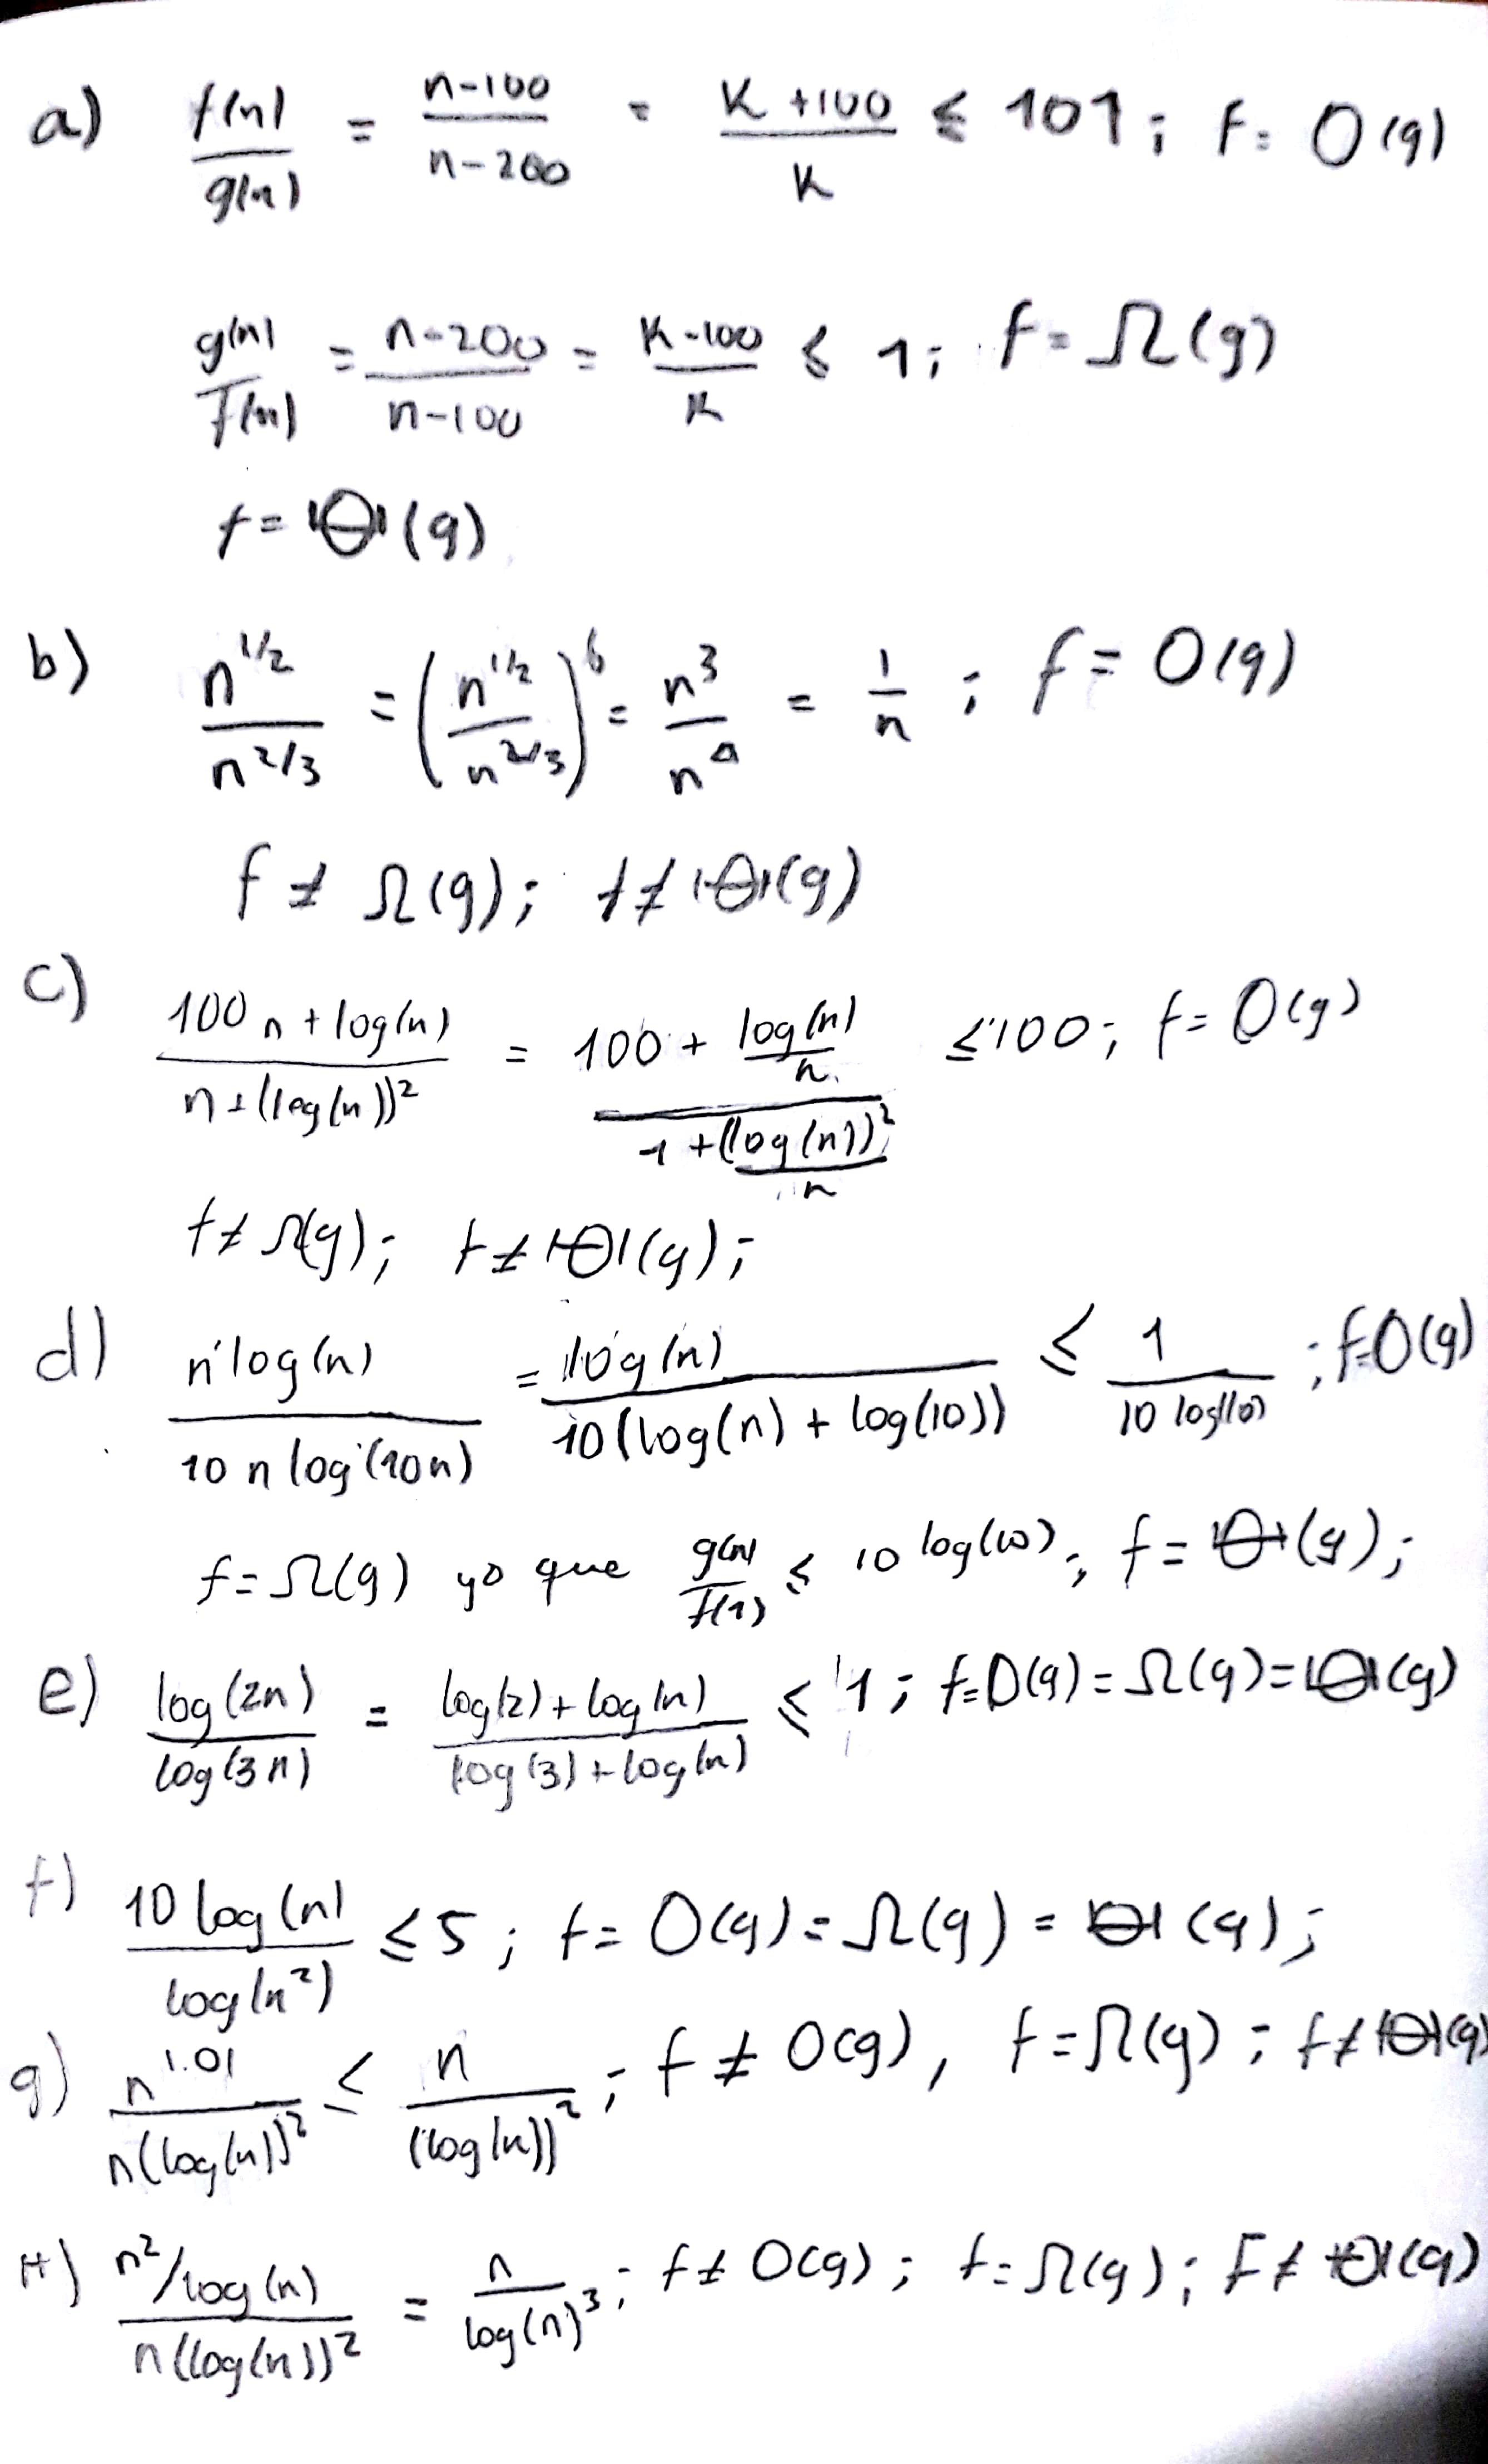 a) f(n)/g(n) = n-100/n-200 = K+100/K ≤ 101; f = O(g)
g(n)/f(n) = n-200/n-100 = K-100/K ≤ 1; f = Ω(g)
f = Θ(g)
b) n^1/2/n^2/3 = (n^1/2/n^2/3)^6 = n^3/n^4 = 1/n; f = O(g)
f ≠ Ω(g); f ≠ Θ(g)
c) 100n + log(n)/n + (log(n))^2 = 100 + log(n)/n / 1 + (log(n))^2/n ≤ 100; f = O(g)
f ≠ Ω(g); f ≠ Θ(g);
d) n log(n)/10 n log(10n) = log(n)/10(log(n) + log(10)) ≤ 1/10 log(10); f = O(g)
f = Ω(g) ya que g(n)/f(n) ≤ 10 log(10); f = Θ(g);
e) log(2n)/log(3n) = log(2) + log(n)/log(3) + log(n) ≤ 1; f = O(g) = Ω(g) = Θ(g)
f) 10 log(n)/log(n^2) ≤ 5; f = O(g) = Ω(g) = Θ(g);
g) n^1.01/n(log(n))^2 ≤ n/(log(n))^2; f ≠ O(g), f = Ω(g); f ≠ Θ(g)
H) n^2/log(n)/n(log(n))^2 = n/log(n)^3; f ≠ O(g); f = Ω(g); F ≠ Θ(g)